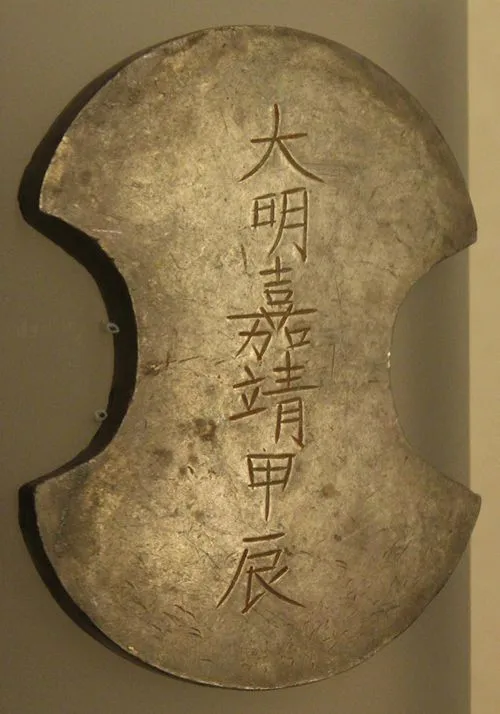 大明嘉靖甲辰